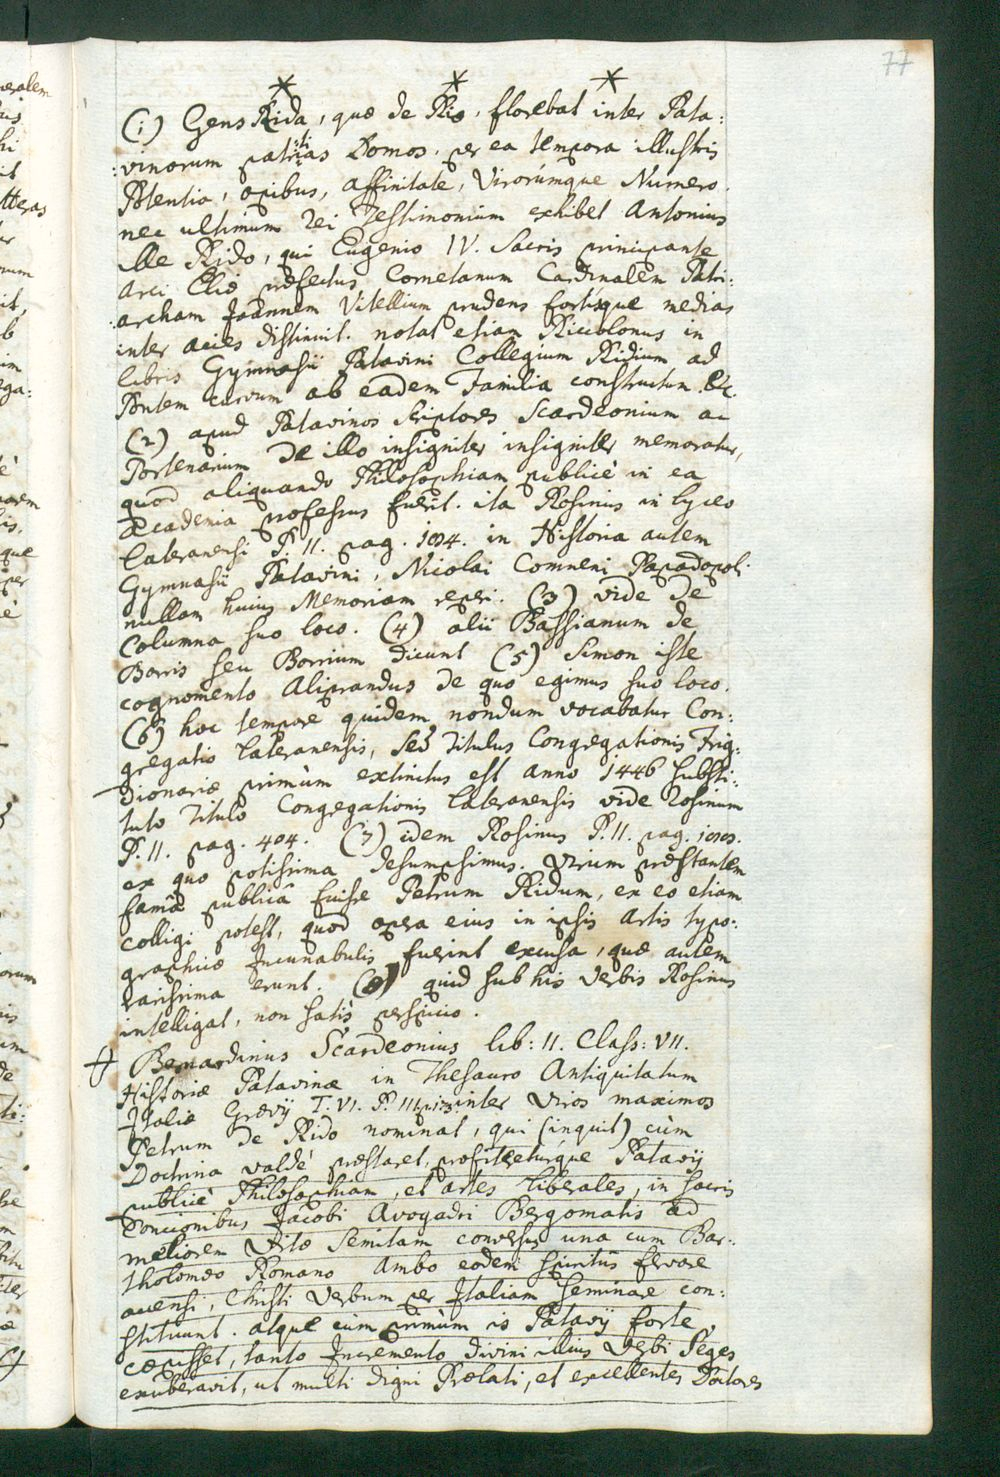 77
* * *
(1) Gens Rida, quæ de Rio, florebat inter Pata-
:vinorum patritias Domos. per ea tempora illustris
Potentia, opibus, affinitate, Virorúmque Numero.
nec ultimum rei Testimonium exhibet Antonius
ille Rido, qui Eugenio IV. Sacris principante
Arci Eliæ præfectus Cornetanum Cardinalem Patri:
:archam Joannem Vitellium prudens fortisque medias
inter acies distinuit. notat etiam Riccobonus in
libris Gymnasii Patavini Collegium Ridium ad
Pontem curvum ab eadem Familia constructum. etc.
(2) apud Patavinos Scriptores Scardeonium ac
Portenarium De illo insigniter insigniter memoratur,
quod aliquando Philosophiam publicè in ea
Academia professus fuerit. ita Rosinus in Lyceo
Lateranensi P. II. pag. 1094. in Historia autem
Gymnasii Patavini, Nicolai Comneni Papadopoli
nullam huius Memoriam reperi. (3) vide De
Columna suo loco. (4) alii Bassianum de
Borris seu Borrium dicunt (5) Simon iste
cognomento Aliprandus de quo egimus suo loco.
(6) hoc tempore quidem nondum vocabatur Con:
gregatio Lateranensis, sed Titulus Congregationis Frig:
dionariæ primùm extinctus est Anno 1446 substi:
tuto Titulo Congregationis Lateranensis vide Rosinum
P. II. pag. 404. (7) idem Rosinus P. II. pag.
ex quo potissima desumpsimus. Virum præstantem
famâ publicâ fuisse Petrum Ridum, ex eo etiam
colligi potest, quod opera eius in ipsis Artis typo:
graphicæ Incunabulis fuerint excusa, quæ autem
rarissima erunt. (8) quid sub his Verbis Rosinus
intelligat, non satis perspicio.
Bernardinus Scardeonius lib: II. Class: VII.
Historiæ Patavinæ in Thesauro Antiquitatum
Italiæ Grævij T. VI. P. III. inter Viros maximos
Petrum de Rido nominat, qui (inquit) cùm
Doctrina valdè præstaret, profitereturque Patavij
publicè Philosophiam, et artes liberales, in sacris
Concionibus Jacobi Avogadri Bergomatis ad
meliorem Vitæ semitam conversus una cum Bar:
tholomæo Romano Ambo eodem spiritûs fervore
accensi, Christi Verbum per Italiam seminare con:
stituunt. atque cùm primùm is Patavij forte
cœpisset, tanto Incremento divini illius Verbi Seges
exuberavit, ut multi digni Prælati, et excellentes Doctores